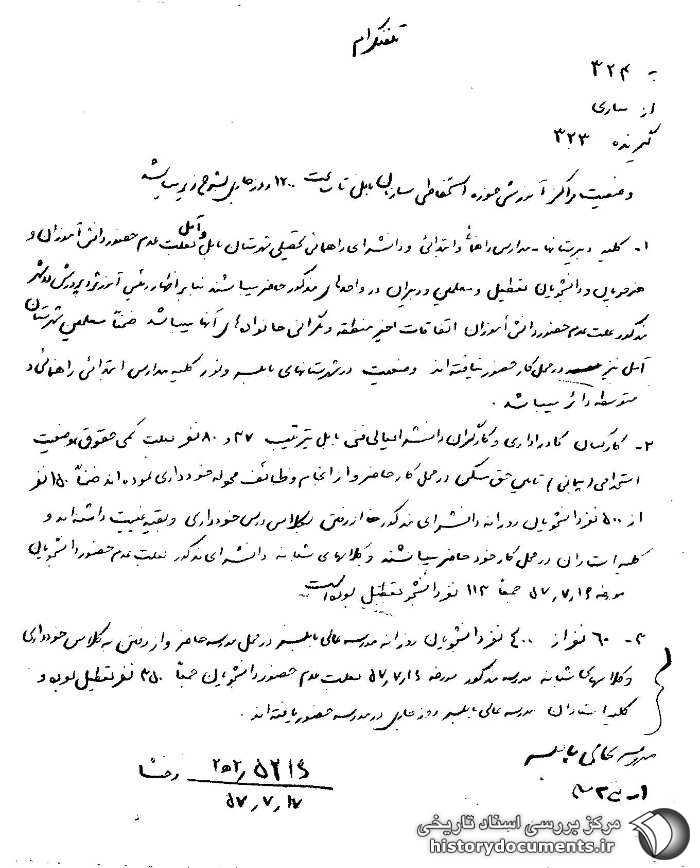 تلفنگرام
به ۳۲۴
از ساری
گیرنده ۳۲۳
وضعیت مراکز آموزشی حوزه استحفاظی سازمان بابل تا ساعت ۱۲۰۰ روز جاری بشرح زیر میباشد
۱- کلیه دبیرستانها - مدارس راهنمائی و ابتدائی و دانشسرای راهنمائی تحصیلی شهرستان بابل و آمل بعلت عدم حضور دانش آموزان و
هنرجویان و دانشجویان تعطیل و معلمین و دبیران در واحدهای مذکور حاضر میباشند بنابر اظهار رئیس آموزش و پرورش
مذکور علت عدم حضور دانش آموزان اتفاقات اخیر منطقه و نگرانی خانواده های آنها میباشد ضمناً معلمین شهرستان
آمل نیز در محل کار حضور نیافته اند وضعیت در شهرستانهای بابلسر و نور کلیه مدارس ابتدائی راهنمائی و
متوسطه دائر میباشد.
۲- کارکنان کادر اداری و کارگران دانشسرایعالی فنی بابل بترتیب ۳۷ و ۸۰ نفر بعلت کمی حقوق، وضعیت
استخدامی (پیمانی) تامین حق مسکن در محل کار حاضر و از انجام وظائف محوله خودداری نموده اند ضمناً ۱۵۰ نفر
از ۵۰۰ نفر دانشجویان روزانه دانشسرای مذکور از رفتن بکلاس درس خودداری و بقیه غیبت داشته اند و
کلیه استادان در محل کار خود حاضر میباشند و کلاسهای شبانه دانشسرای مذکور بعلت عدم حضور دانشجویان
مورخه ۵۷٫۷٫۱۶ جمعاً ۱۱۳ نفر دانشجو تعطیل بوده است
۳- ۶۰ نفر از ۴۰۰ نفر دانشجویان روزانه مدرسه عالی بابلسر در محل مدرسه حاضر و از رفتن به کلاس خودداری
و کلاسهای شبانه مدرسه مذکور مورخه ۵۷٫۷٫۱۶ بعلت عدم حضور دانشجویان جمعاً ۳۵۰ نفر تعطیل بوده و
کلیه استادان مدرسه عالی بابلسر روز جاری در مدرسه حضور یافته اند.
مدرسه عالی بابلسر
۵۷٫۷٫۱۷
مرکز بررسی اسناد تاریخی
historydocuments.ir